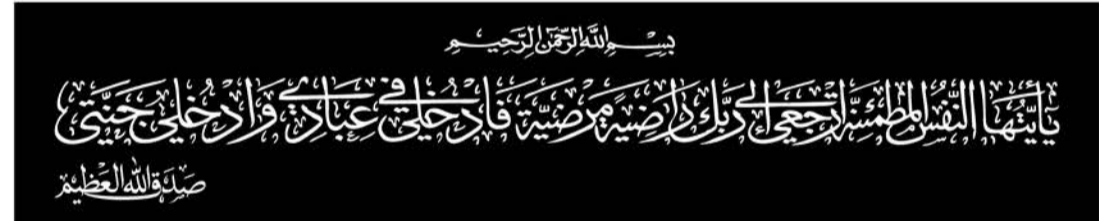 بِسْمِ اللَّهِ الرَّحْمَنِ الرَّحِيمِ
يَا أَيَّتُهَا النَّفْسُ الْمُطْمَئِنَّةُ ارْجِعِي إِلَى رَبِّكِ رَاضِيَةً مَرْضِيَّةً فَادْخُلِي فِي عِبَادِي وَادْخُلِي جَنَّتِي
صَدَقَ اللَّهُ الْعَظِيمُ